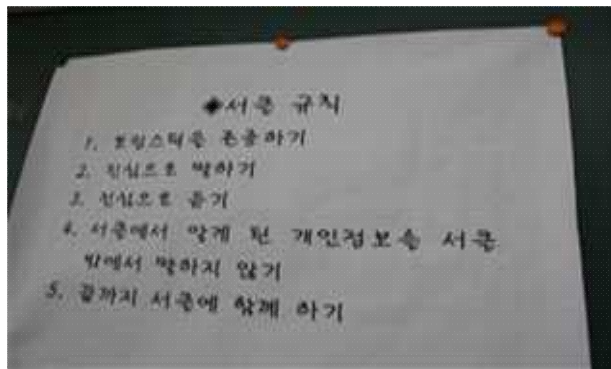 ◆서클 규칙
1. 토킹스틱을 존중하기
2. 진심으로 말하기
3. 진심으로 듣기
4. 서클에서 알게 된 개인정보를 서클
밖에서 말하지 않기
5. 끝까지 서클에 함께 하기